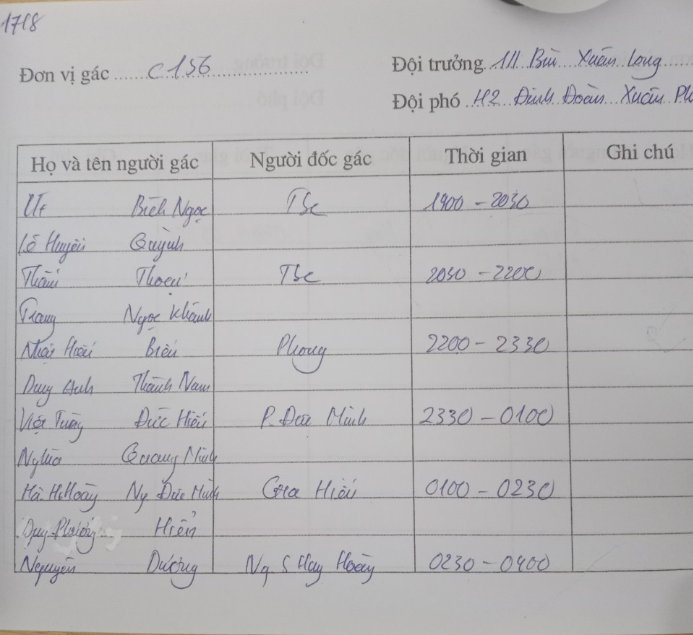 1718
Đơn vị gác C156 Đội trưởng 1// Bùi Xuân Long
Đội phó H2 Đinh Đoàn Xuân
Họ và tên người gác Người đốc gác Thời gian Ghi chú
Bích Ngọc Tbc 1900 - 2030
Lê Huyền Quỳnh
Tbc 2030 - 2200
Trang Ngọc Khánh
Phong 2200 - 2330
Duy Anh Thành Nam
Việt Tùng Đức Hiếu P. Đức Minh 2330 - 0100
Nghĩa Quang Minh
Hà H. Hoàng Ng Đức Minh Gia Hiếu 0100 - 0230
Duy Phương Hiển
Nguyên Dương Ng S Huy Hoàng 0230 - 0400